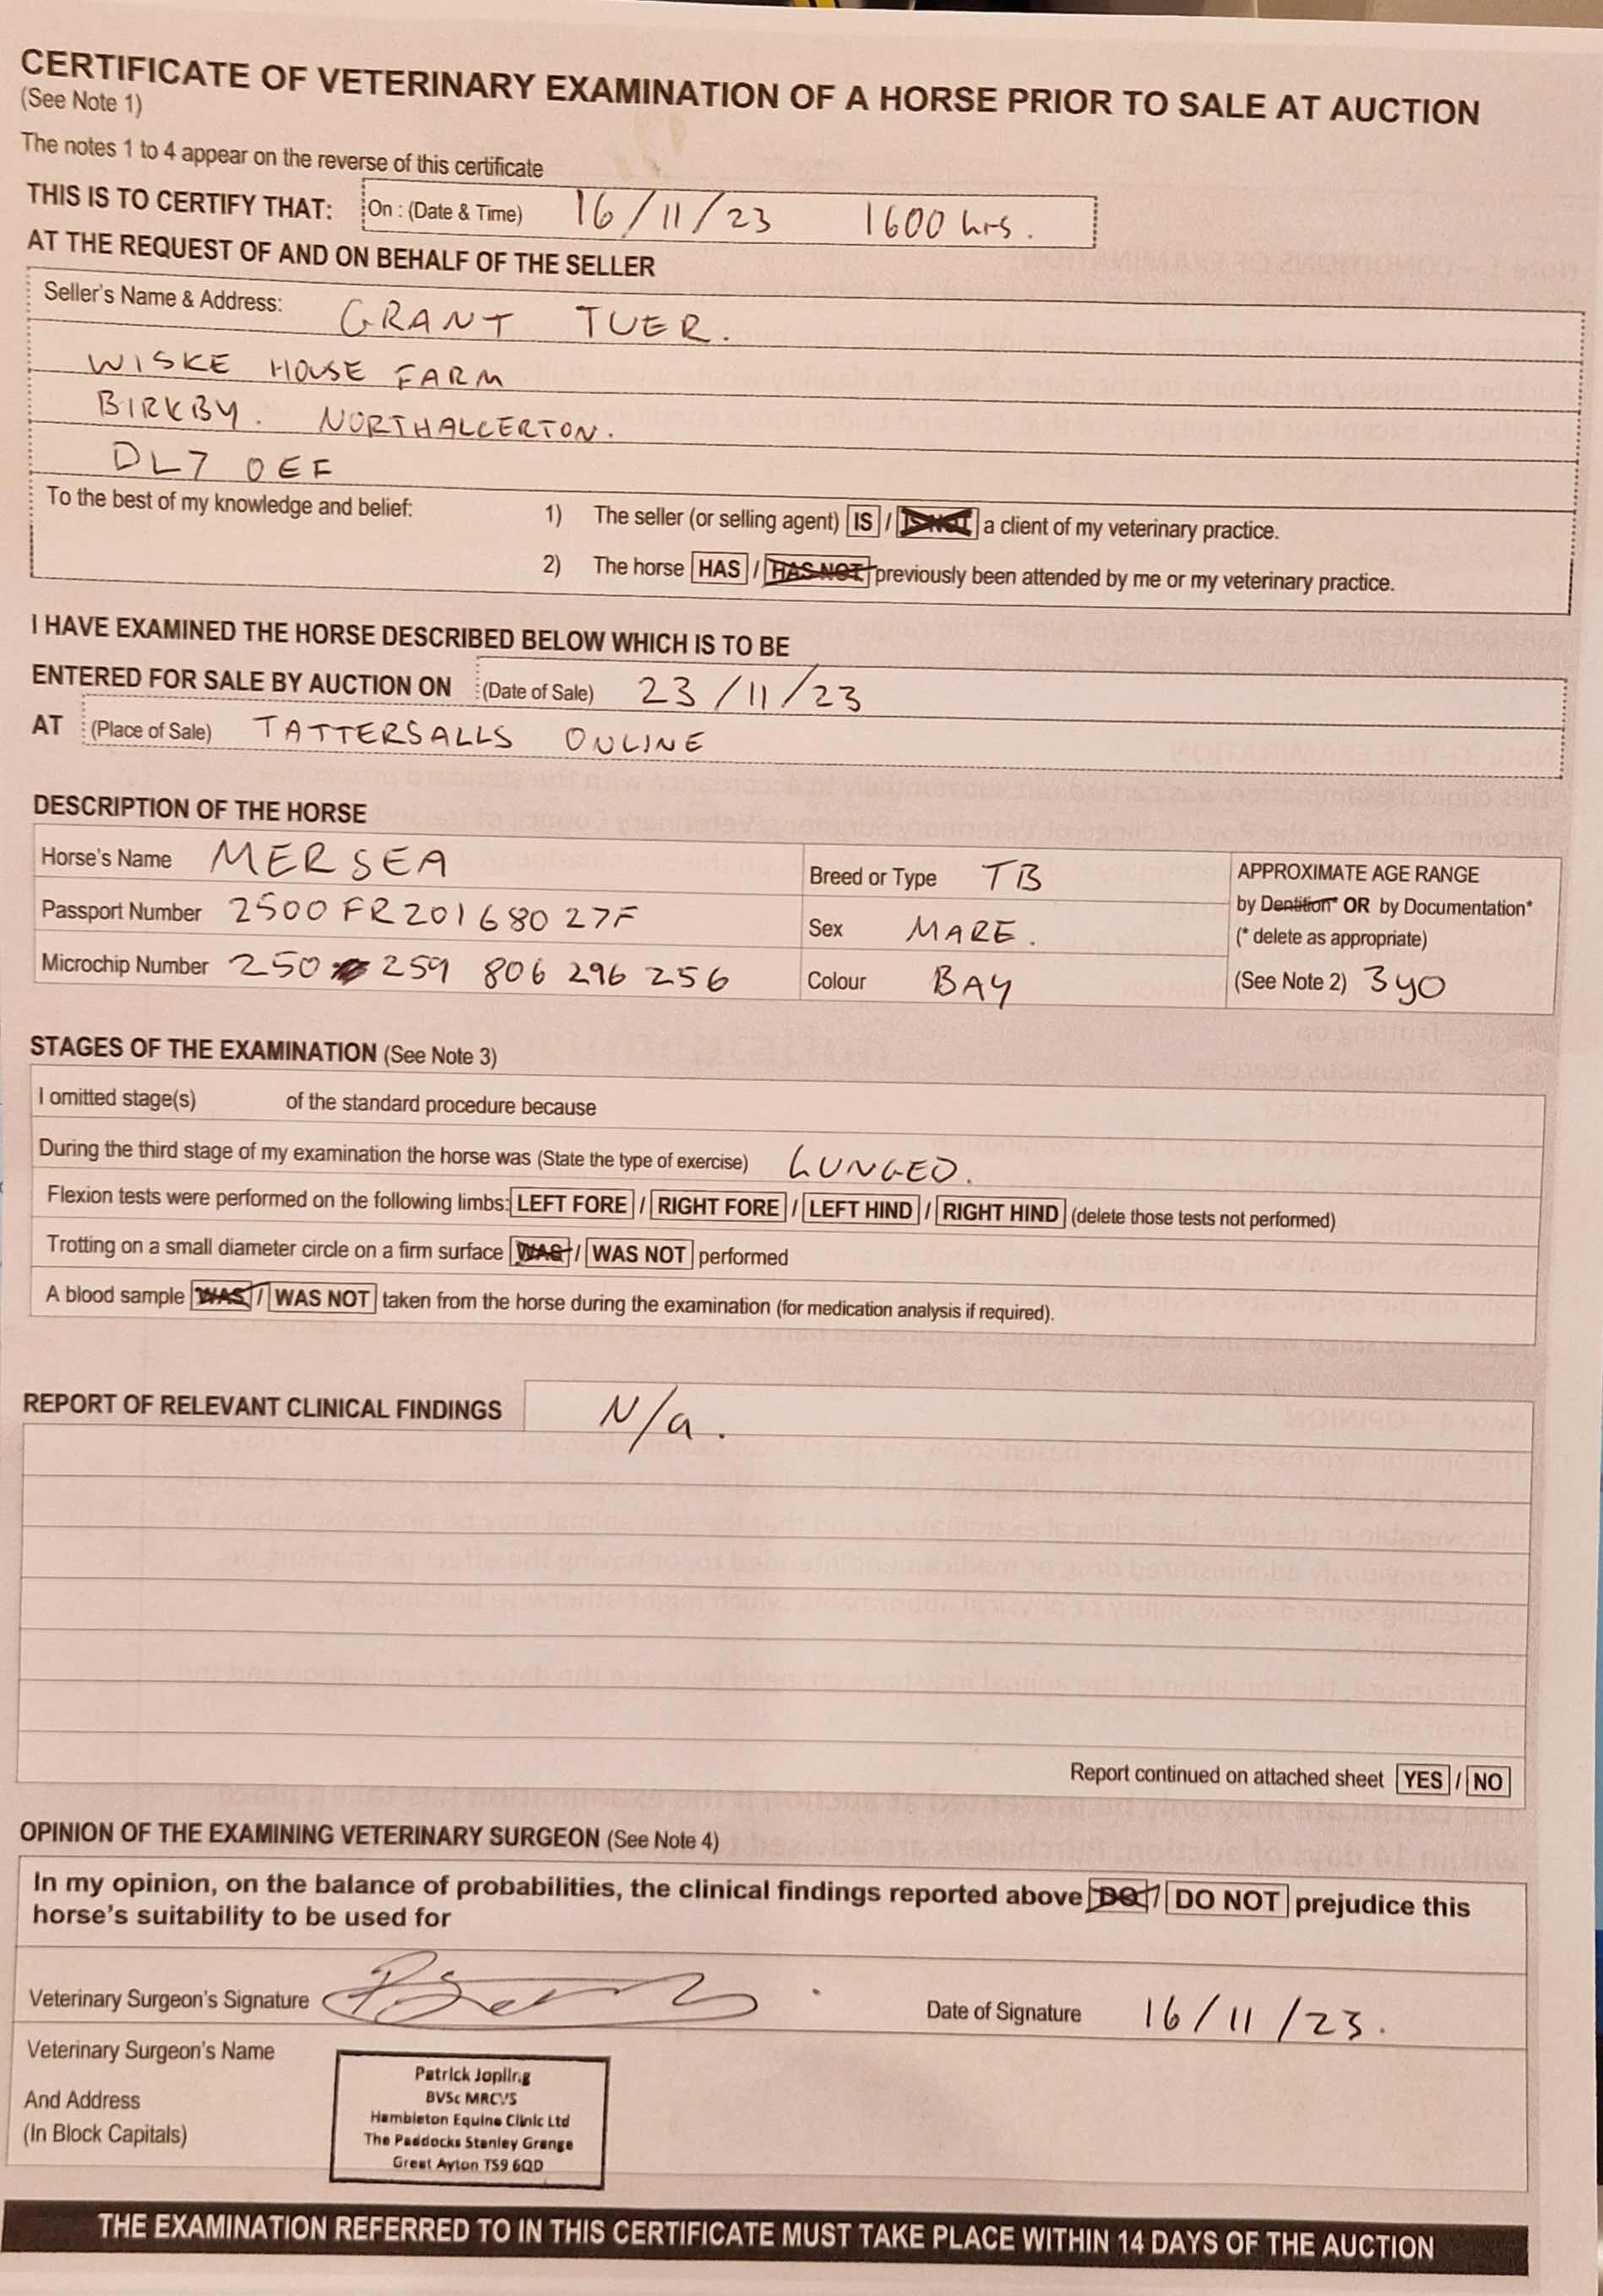 CERTIFICATE OF VETERINARY EXAMINATION OF A HORSE PRIOR TO SALE AT AUCTION
(See Note 1)
The notes 1 to 4 appear on the reverse of this certificate
THIS IS TO CERTIFY THAT: On : (Date & Time) 16/11/23 1600 hrs.
AT THE REQUEST OF AND ON BEHALF OF THE SELLER
Seller's Name & Address: GRANT TUER.
WISKE HOUSE FARM
BIRKBY. NORTHALLERTON.
DL7 0EF
To the best of my knowledge and belief: 1) The seller (or selling agent) IS / IS NOT a client of my veterinary practice.
2) The horse HAS / HAS NOT previously been attended by me or my veterinary practice.
I HAVE EXAMINED THE HORSE DESCRIBED BELOW WHICH IS TO BE
ENTERED FOR SALE BY AUCTION ON (Date of Sale) 23/11/23
AT (Place of Sale) TATTERSALLS ONLINE
DESCRIPTION OF THE HORSE
Horse's Name MERSEA
Passport Number 2500FR20168027F
Microchip Number 250 259 806 296 256
Breed or Type TB
Sex MARE.
Colour BAY
APPROXIMATE AGE RANGE
by Dentition* OR by Documentation*
(* delete as appropriate)
(See Note 2) 3yo
STAGES OF THE EXAMINATION (See Note 3)
I omitted stage(s) of the standard procedure because
During the third stage of my examination the horse was (State the type of exercise) LUNGED.
Flexion tests were performed on the following limbs: LEFT FORE / RIGHT FORE / LEFT HIND / RIGHT HIND (delete those tests not performed)
Trotting on a small diameter circle on a firm surface WAS / WAS NOT performed
A blood sample WAS / WAS NOT taken from the horse during the examination (for medication analysis if required).
REPORT OF RELEVANT CLINICAL FINDINGS N/a.
Report continued on attached sheet YES / NO
OPINION OF THE EXAMINING VETERINARY SURGEON (See Note 4)
In my opinion, on the balance of probabilities, the clinical findings reported above DO / DO NOT prejudice this
horse's suitability to be used for
Veterinary Surgeon's Signature
Date of Signature 16/11/23.
Veterinary Surgeon's Name
And Address
(In Block Capitals)
Patrick Jopling
BVSc MRCVS
Hambleton Equine Clinic Ltd
The Paddocks Stanley Grange
Great Ayton TS9 6QD
THE EXAMINATION REFERRED TO IN THIS CERTIFICATE MUST TAKE PLACE WITHIN 14 DAYS OF THE AUCTION